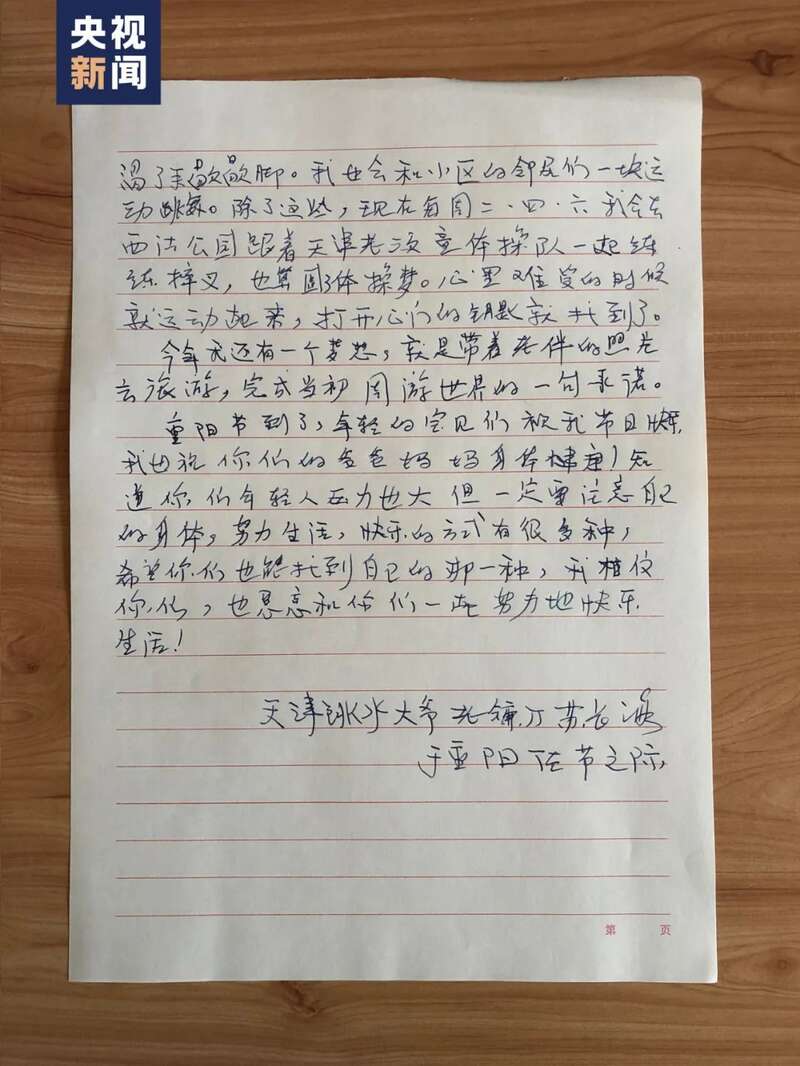 央视
新闻
渴了来歇歇脚。我也会和小区的邻居们一块运
动跳舞。除了这些，现在每周二·四·六我会去
西沽公园跟着天津老顽童体操队一起练
练摔叉，也算圆了体操梦。心里难受的时候
就运动起来，打开心门的钥匙就找到了。
今年我还有一个梦想，就是带着老伴的照片
去旅游，完成当初周游世界的一句承诺。
重阳节到了，年轻的宝贝们祝我节日快乐，
我也祝你们的爸爸妈妈身体健康！知
道你们年轻人压力也大但一定要注意自己
的身体，努力生活，快乐的方式有很多种，
希望你们也能找到自己的那一种，我相信
你们，也愿意和你们一起努力地快乐
生活！
天津跳水大爷 老镰刀 苏长海
于重阳佳节之际
第 页